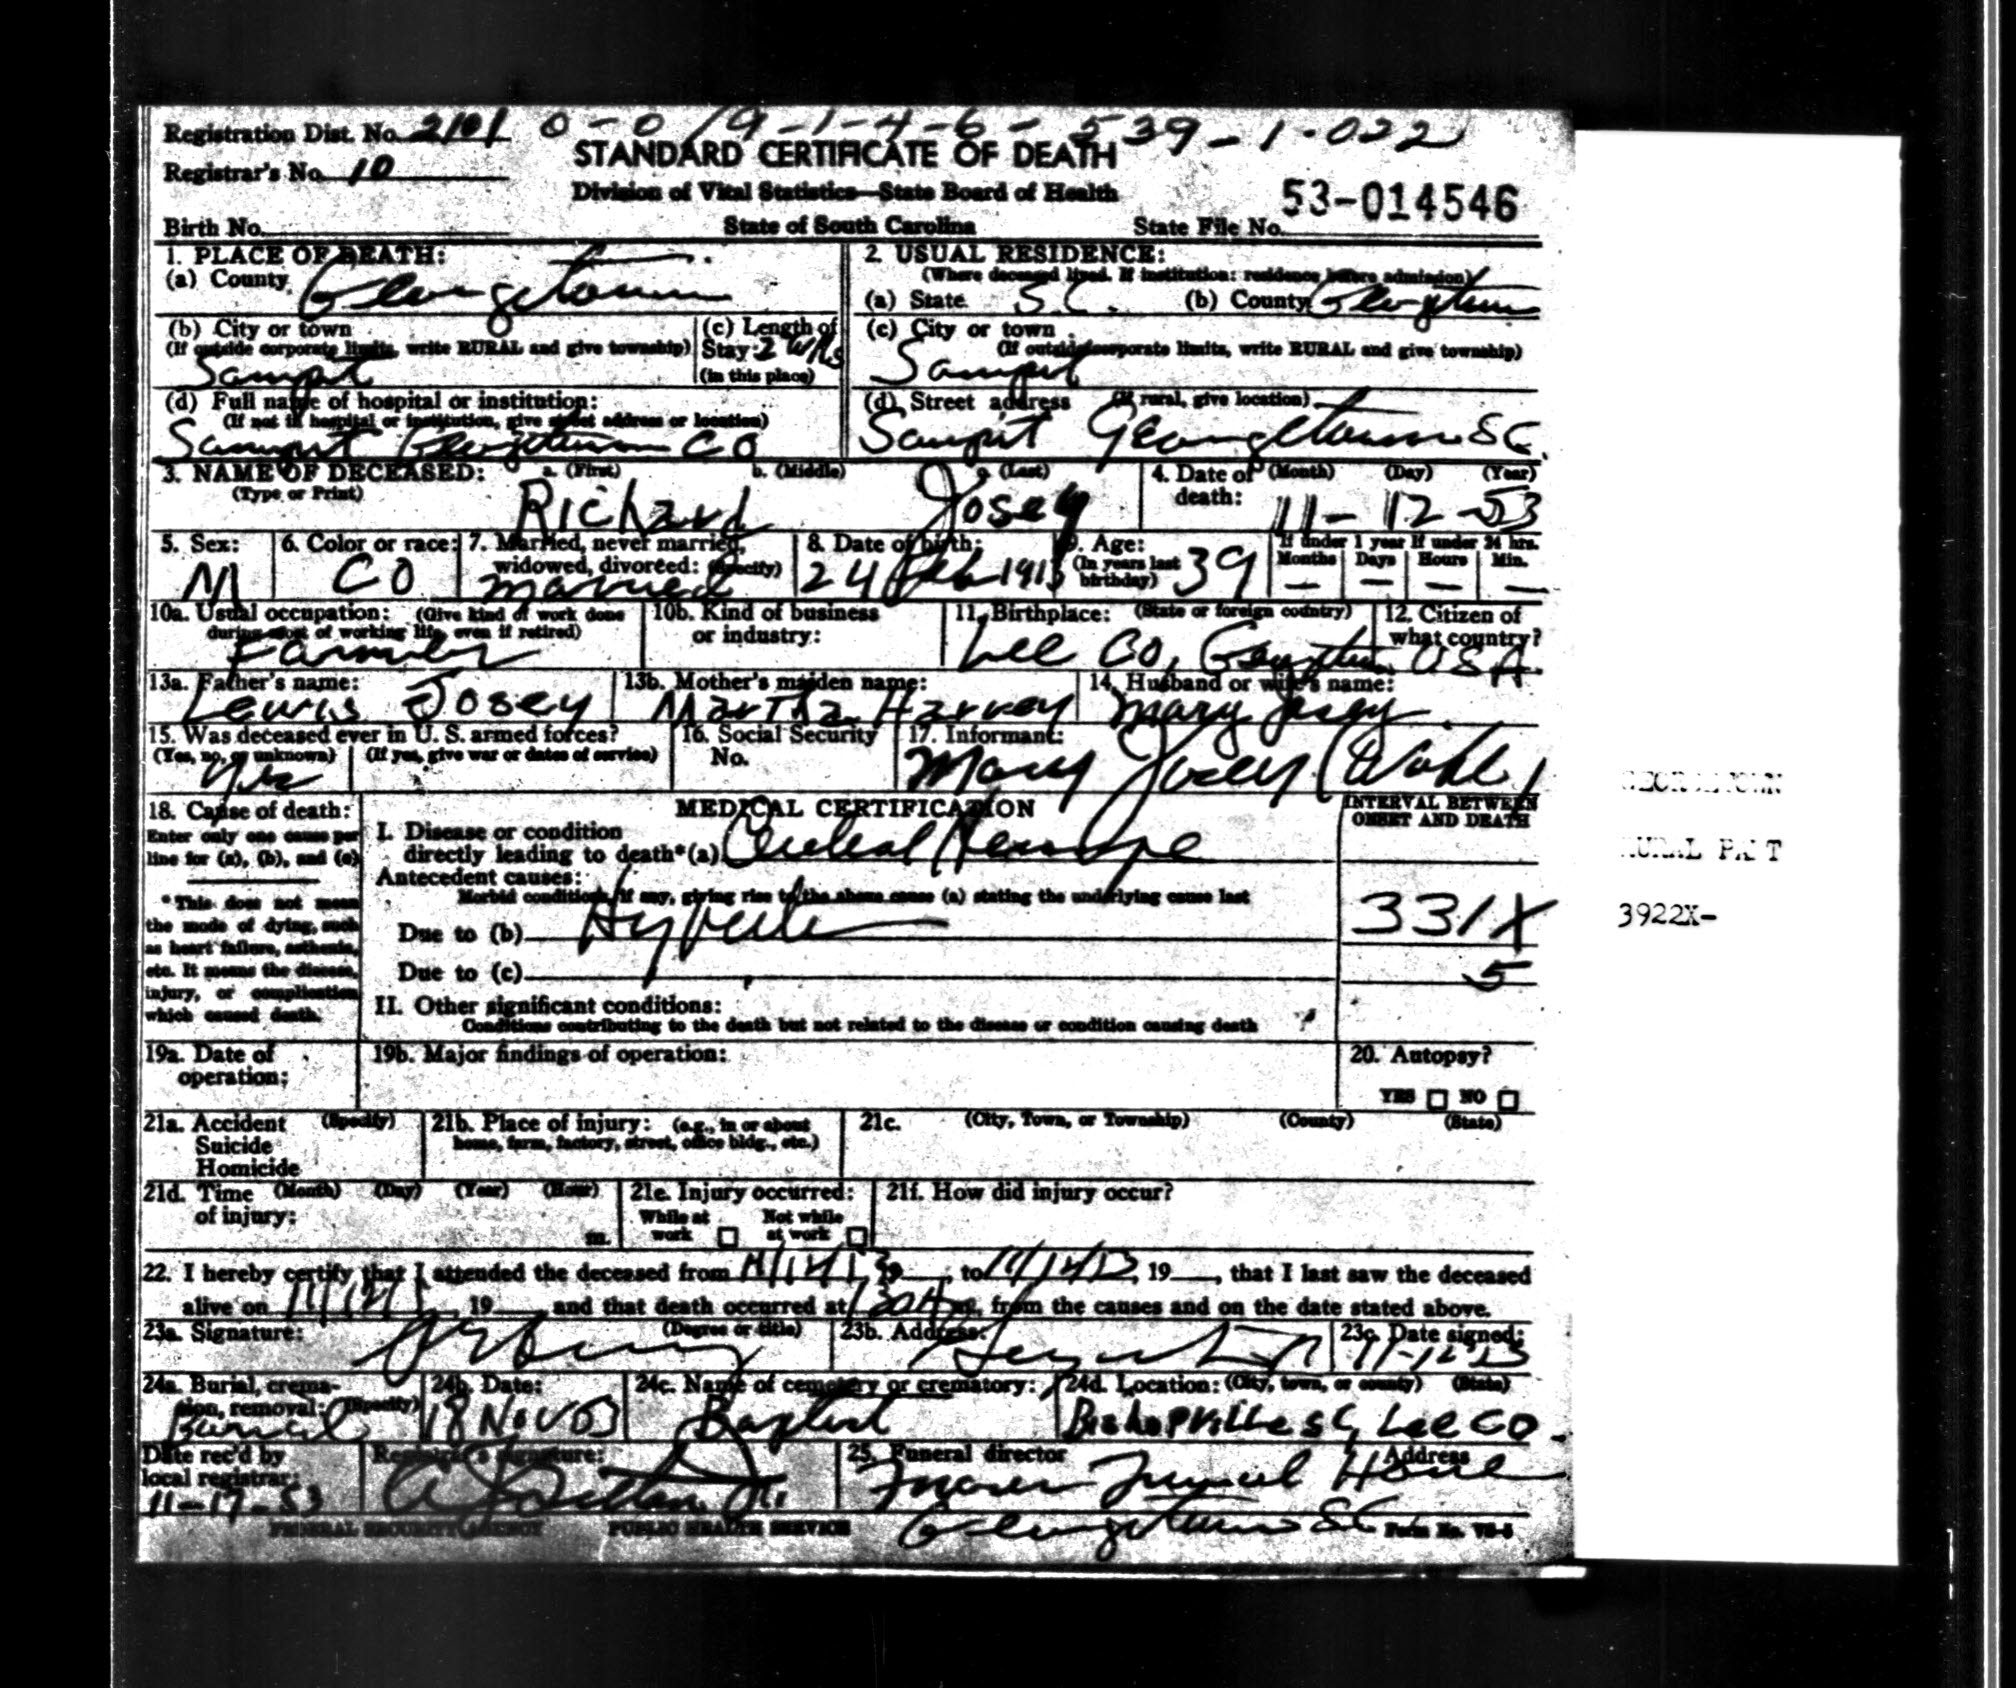 Registration Dist. No. 2101 0-0 19-1-4-6-539-1-022
STANDARD CERTIFICATE OF DEATH
Registrar's No. 10
Division of Vital Statistics—State Board of Health
53-014546
Birth No.
State of South Carolina
State File No.
1. PLACE OF DEATH:
(a) County Georgetown
2. USUAL RESIDENCE:
(Where deceased lived. If institution: residence before admission)
(a) State S.C. (b) County Georgetown
(b) City or town
(If outside corporate limits, write RURAL and give township)
Sampit
(c) Length of
Stay: 2 Wks
(in this place)
(c) City or town
(If outside corporate limits, write RURAL and give township)
Sampit
(d) Full name of hospital or institution:
(If not in hospital or institution, give street address or location)
Sampit Georgetown CO
(d) Street address (If rural, give location)
Sampit Georgetown SC.
3. NAME OF DECEASED: a. (First) b. (Middle) c. (Last)
(Type or Print)
Richard Josey
4. Date of (Month) (Day) (Year)
death: 11-12-53
5. Sex:
M
6. Color or race:
CO
7. Married, never married,
widowed, divorced: (Specify)
married
8. Date of birth:
24 Feb 1913
9. Age:
(In years last
birthday) 39
If under 1 year If under 24 hrs.
Months Days Hours Min.
— — — —
10a. Usual occupation: (Give kind of work done
during most of working life, even if retired)
Farmer
10b. Kind of business
or industry:
11. Birthplace: (State or foreign country)
Lee CO,
12. Citizen of
what country?
USA.
13a. Father's name:
Lewis Josey
13b. Mother's maiden name:
Martha Harvey
14. Husband or wife's name:
Mary Josey
15. Was deceased ever in U. S. armed forces?
(Yes, no, or unknown) (If yes, give war or dates of service)
Yes
16. Social Security
No.
17. Informant:
Mary Josey (Wife)
18. Cause of death:
Enter only one cause per
line for (a), (b), and (c)
*This does not mean
the mode of dying, such
as heart failure, asthenia,
etc. It means the disease,
injury, or complication
which caused death.
MEDICAL CERTIFICATION
I. Disease or condition
directly leading to death*(a) Cerebral
Antecedent causes:
Morbid conditions, if any, giving rise to the above cause (a) stating the underlying cause last
Due to (b)
Due to (c)
II. Other significant conditions:
Conditions contributing to the death but not related to the disease or condition causing death
INTERVAL BETWEEN
ONSET AND DEATH
331X
5
19a. Date of
operation:
19b. Major findings of operation:
20. Autopsy?
YES NO
21a. Accident (Specify)
Suicide
Homicide
21b. Place of injury: (e.g., in or about
home, farm, factory, street, office bldg., etc.)
21c. (City, Town, or Township) (County) (State)
21d. Time (Month) (Day) (Year) (Hour)
of injury:
m.
21e. Injury occurred:
While at Not while
work at work
21f. How did injury occur?
22. I hereby certify that I attended the deceased from 19 , to 19 , that I last saw the deceased
alive on 19 and that death occurred at m., from the causes and on the date stated above.
23a. Signature: (Degree or title)
23b. Address:
23c. Date signed:
24a. Burial, crema-
tion, removal: (Specify)
Burial
24b. Date:
18 NOV 53
24c. Name of cemetery or crematory:
Baptist
24d. Location: (City, town, or county) (State)
Bishopville SC, Lee CO.
Date rec'd by
local registrar:
11-17-53
Registrar's signature:
25. Funeral director Address
Funeral Home
Georgetown SC
FEDERAL SECURITY AGENCY PUBLIC HEALTH SERVICE
Form No. VS-5
GEORGETOWN
RURAL
3922X-